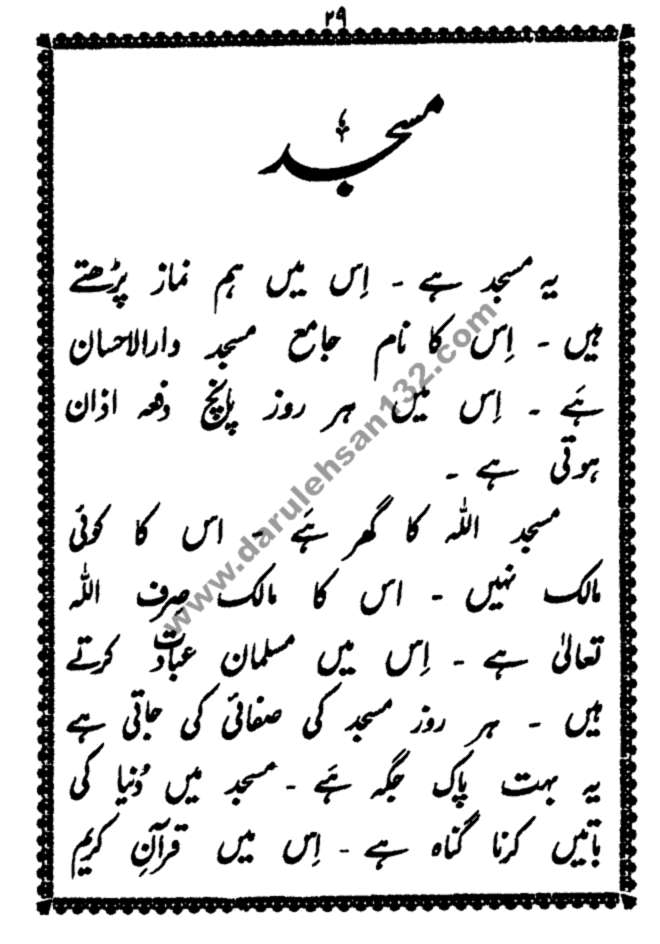 ۲۹
مسجد
یہ مسجد ہے ۔ اِس میں ہم نماز پڑھتے
ہیں ۔ اِس کا نام جامع مسجد دارالاحسان
ہَے ۔ اِس میں ہر روز پانچ دفعہ اذان
ہوتی ہے ۔
مسجد اللہ کا گھر ہَے ۔ اس کا کوئی
مالک نہیں ۔ اس کا مالک صِرف اللہ
تعالیٰ ہے ۔ اِس میں مسلمان عبادت کرتے
ہیں ۔ ہر روز مسجد کی صفائی کی جاتی ہے
یہ بہت پاک جگہ ہَے ۔ مسجد میں دُنیا کی
باتیں کرنا گناہ ہے ۔ اِس میں قرآنِ کریم
www.darulehsan132.com